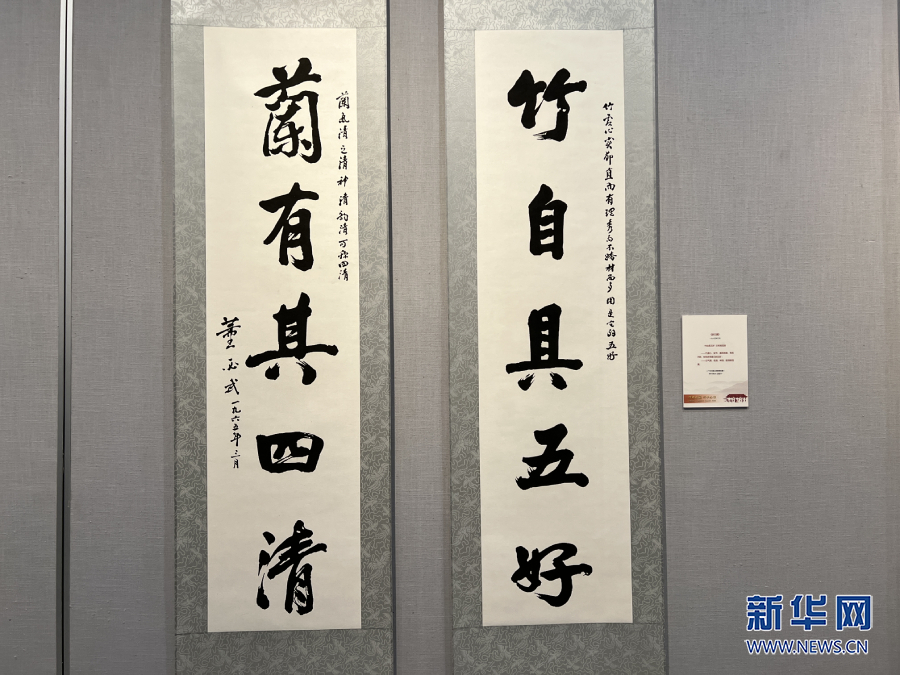 竹自具五好
竹虚心实節直而有理秀而不材而多用是它的五好
蘭有其四清
蘭氣清色清神清韵清可称四清
董必武
一九六五年三月
新华网
WWW.NEWS.CN